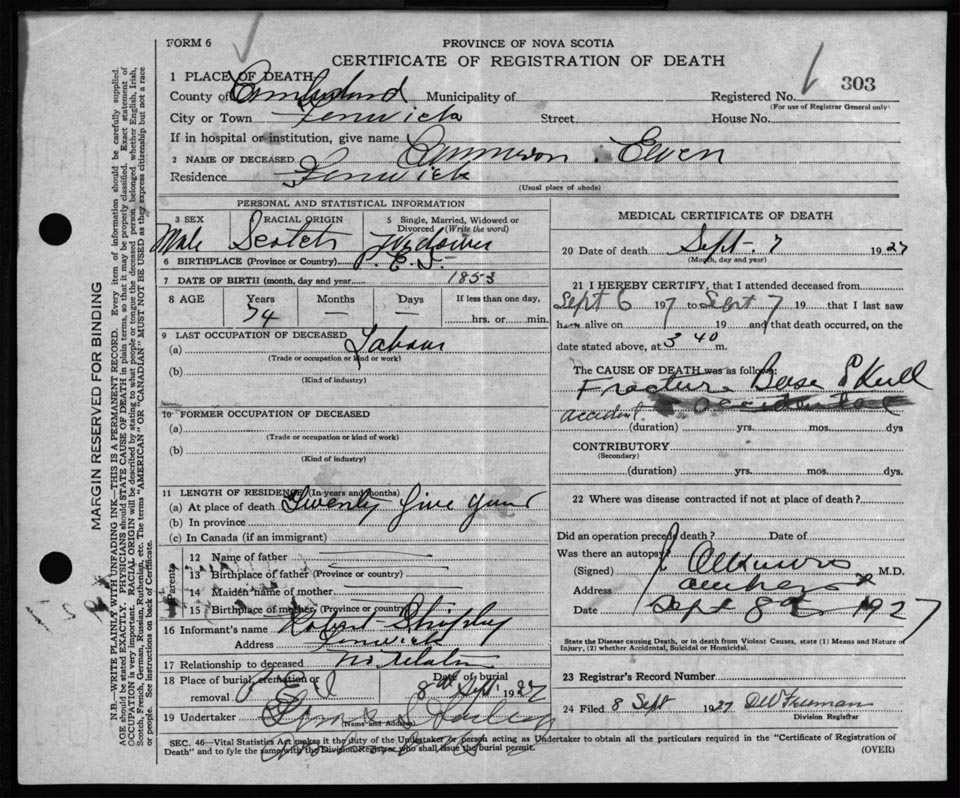 FORM 6
PROVINCE OF NOVA SCOTIA
CERTIFICATE OF REGISTRATION OF DEATH
303
1 PLACE OF DEATH
County of Cumberland Municipality of Registered No.
(For use of Registrar General only)
City or Town Fenwick Street House No.
If in hospital or institution, give name
2 NAME OF DECEASED Ewen
Residence Fenwick
(Usual place of abode)
PERSONAL AND STATISTICAL INFORMATION
3 SEX Male
RACIAL ORIGIN Scotch
5 Single, Married, Widowed or Divorced (Write the word) Widower
6 BIRTHPLACE (Province or Country) P. E. I.
7 DATE OF BIRTH (month, day and year) 1853
8 AGE Years Months Days If less than one day,
74 — — hrs. or min.
9 LAST OCCUPATION OF DECEASED
(a) Labour
(Trade or occupation or kind or work)
(b)
(Kind of industry)
10 FORMER OCCUPATION OF DECEASED
(a)
(Trade or occupation or kind of work)
(b)
(Kind of industry)
11 LENGTH OF RESIDENCE (In years and months)
(a) At place of death Twenty five years
(b) In province
(c) In Canada (if an immigrant)
Parents
12 Name of father
13 Birthplace of father (Province or country)
14 Maiden name of mother
15 Birthplace of mother (Province or country)
16 Informant's name Robert Shipley
Address Fenwick
17 Relationship to deceased no relation
18 Place of burial, cremation or removal P E I
Date of burial 8th Sept. 1927
19 Undertaker
(Name and Address)
MEDICAL CERTIFICATE OF DEATH
20 Date of death Sept. 7 1927
(Month, day and year)
21 I HEREBY CERTIFY, that I attended deceased from
Sept 6 197 to Sept 7 19 that I last saw
h alive on 7 19 and that death occurred, on
date stated above, at 3 40 m.
The CAUSE OF DEATH was as follows:
Fracture Base Skull
accident
(duration) yrs. mos. dys
CONTRIBUTORY
(Secondary)
(duration) yrs. mos. dys.
22 Where was disease contracted if not at place of death?
Did an operation precede death? Date of
Was there an autopsy
(Signed) M.D.
Address Amherst
Date Sept 8 1927
State the Disease causing Death, or in death from Violent Causes, state (1) Means and Nature of
Injury, (2) whether Accidental, Suicidal or Homicidal.
23 Registrar's Record Number
24 Filed 8 Sept 1927 Freeman
Division Registrar
SEC. 46—Vital Statistics Act makes it the duty of the Undertaker or person acting as Undertaker to obtain all the particulars required in the "Certificate of Registration of
Death" and to fyle the same with the Division Registrar who shall issue the burial permit. (OVER)
MARGIN RESERVED FOR BINDING
N.B.—WRITE PLAINLY WITH UNFADING INK—THIS IS A PERMANENT RECORD. Every item of information should be carefully supplied.
AGE should be stated EXACTLY. PHYSICIANS should STATE CAUSE OF DEATH in plain terms, so that it may be properly classified. Exact statement of
OCCUPATION is very important. RACIAL ORIGIN will be described by stating to what people or tongue the deceased person belonged whether English, Irish,
Scotch, French, German, Russian, Ruthenian, etc. The terms "AMERICAN" OR "CANADIAN" MUST NOT BE USED as they express citizenship but not a race
or people. See instructions on back of Certificate.